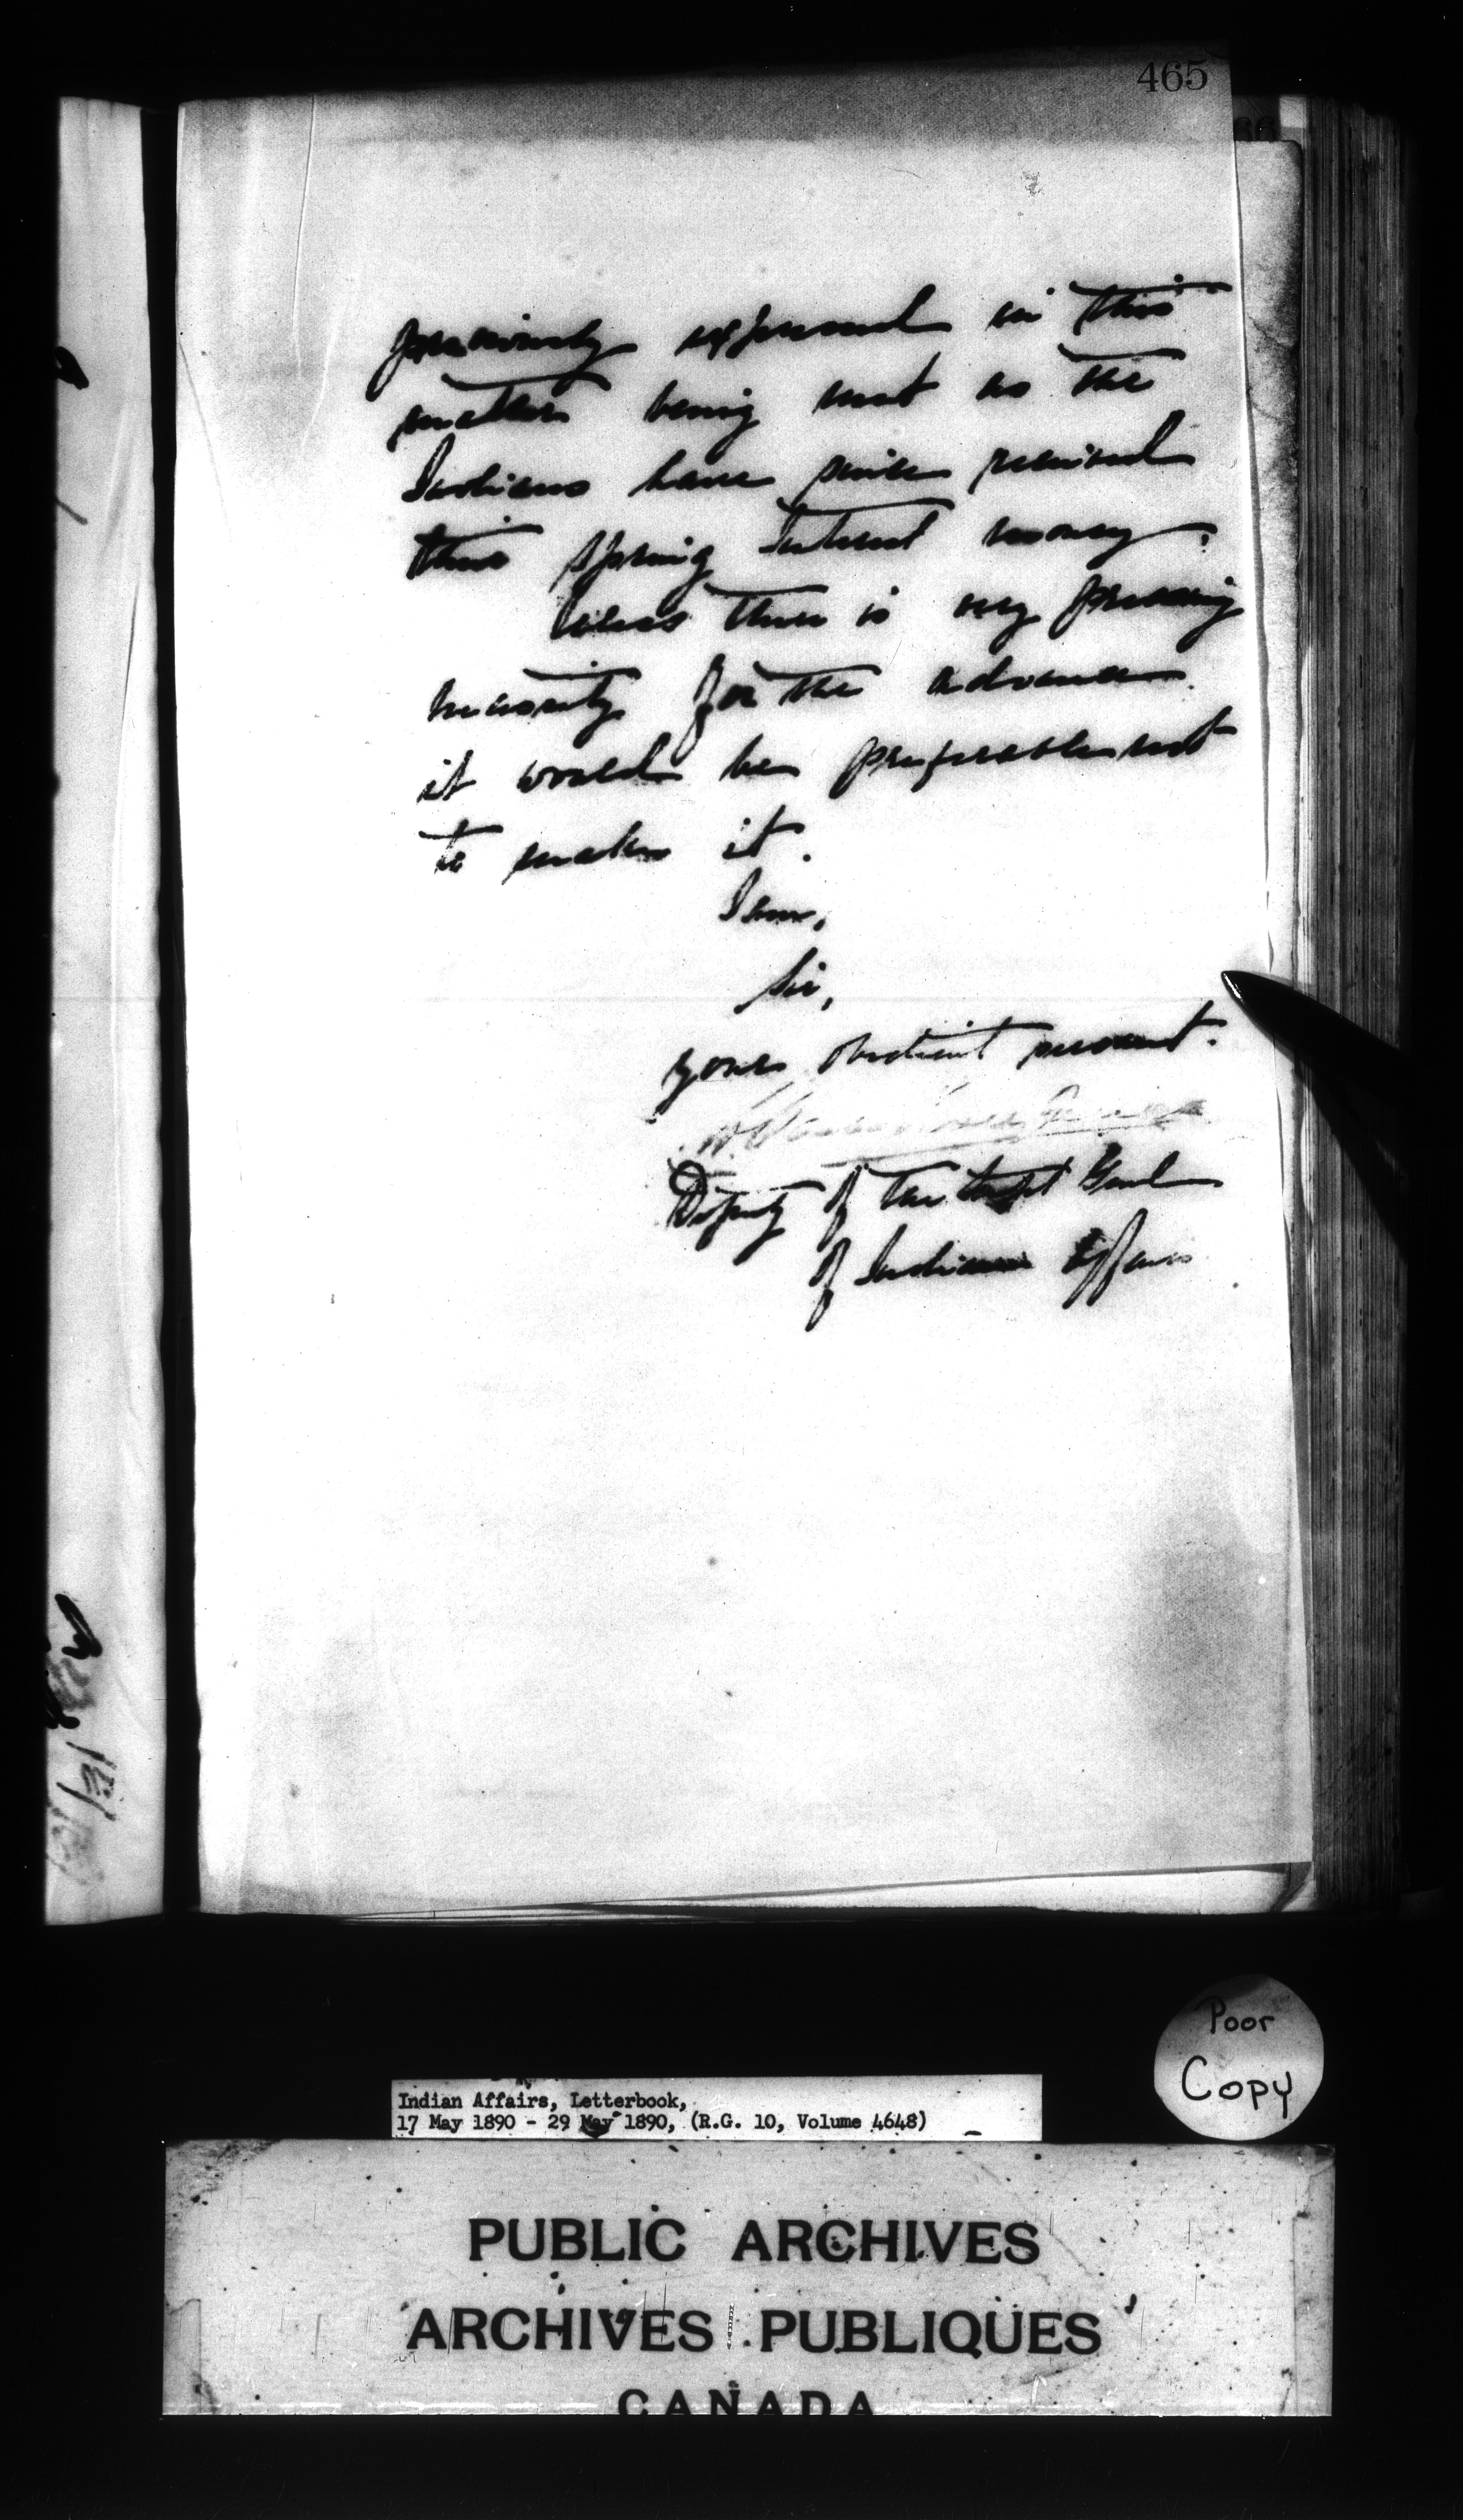 465
previously expressed in this
matter being met as the
Indians have since received
their Spring Interest money.
Unless there is very pressing
necessity for the advance
it would be preferable not
to make it.
I am,
Sir,
your obedient servant.
Deputy of the Supt Genl
of Indian Affairs
Poor
Copy
Indian Affairs, Letterbook,
17 May 1890 - 29 May 1890, (R.G. 10, Volume 4648)
PUBLIC ARCHIVES
ARCHIVES PUBLIQUES
CANADA